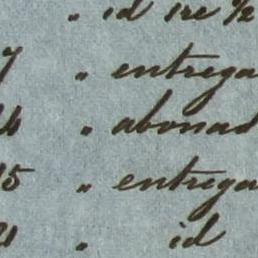 " id 1re ½
7 " entrega
6 " abonad
15 " entrega
21 " id